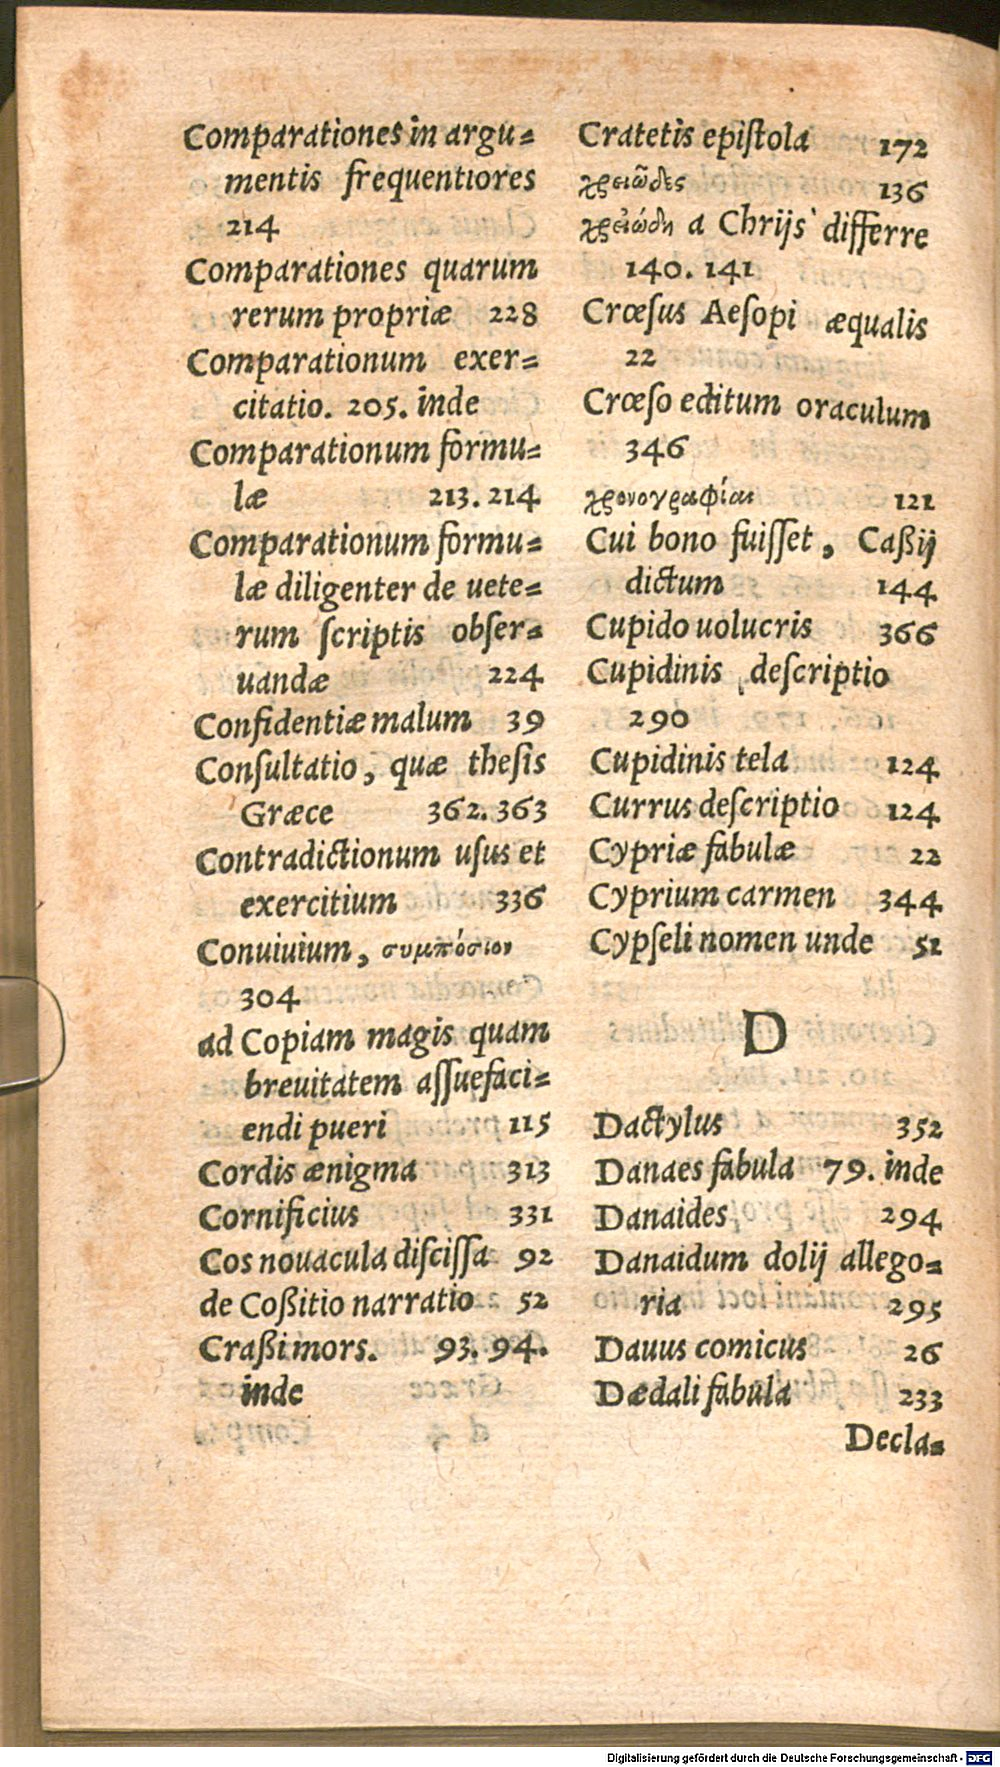 Comparationes in argu=
mentis frequentiores
214
Comparationes quarum
rerum propriæ 228
Comparationum exer=
citatio. 205. inde
Comparationum formu=
læ 213. 214
Comparationum formu=
læ diligenter de uete=
rum ſcriptis obſer=
uandæ 224
Confidentiæ malum 39
Conſultatio, quæ theſis
Græce 362. 363
Contradictionum uſus et
exercitium 336
Conuiuium, συμπόσιον
304
ad Copiam magis quam
breuitatem aſſuefaci=
endi pueri 115
Cordis ænigma 313
Cornificius 331
Cos nouacula diſciſſa 92
de Coßitio narratio 52
Craßi mors. 93. 94.
inde
Cratetis epiſtola 172
χρειῶδες 136
χρειώδη a Chrijs differre
140. 141
Crœſus Aeſopi æqualis
22
Crœſo editum oraculum
346
χρονογραφίαι 121
Cui bono fuiſſet, Caßij
dictum 144
Cupido uolucris 366
Cupidinis deſcriptio
290
Cupidinis tela 124
Currus deſcriptio 124
Cypriæ fabulæ 22
Cyprium carmen 344
Cypſeli nomen unde 51
D
Dactylus 352
Danaes fabula 79. inde
Danaides 294
Danaidum dolij allego=
ria 295
Dauus comicus 26
Dædali fabula 233
Decla=
Digitalisierung gefördert durch die Deutsche Forschungsgemeinschaft - DFG